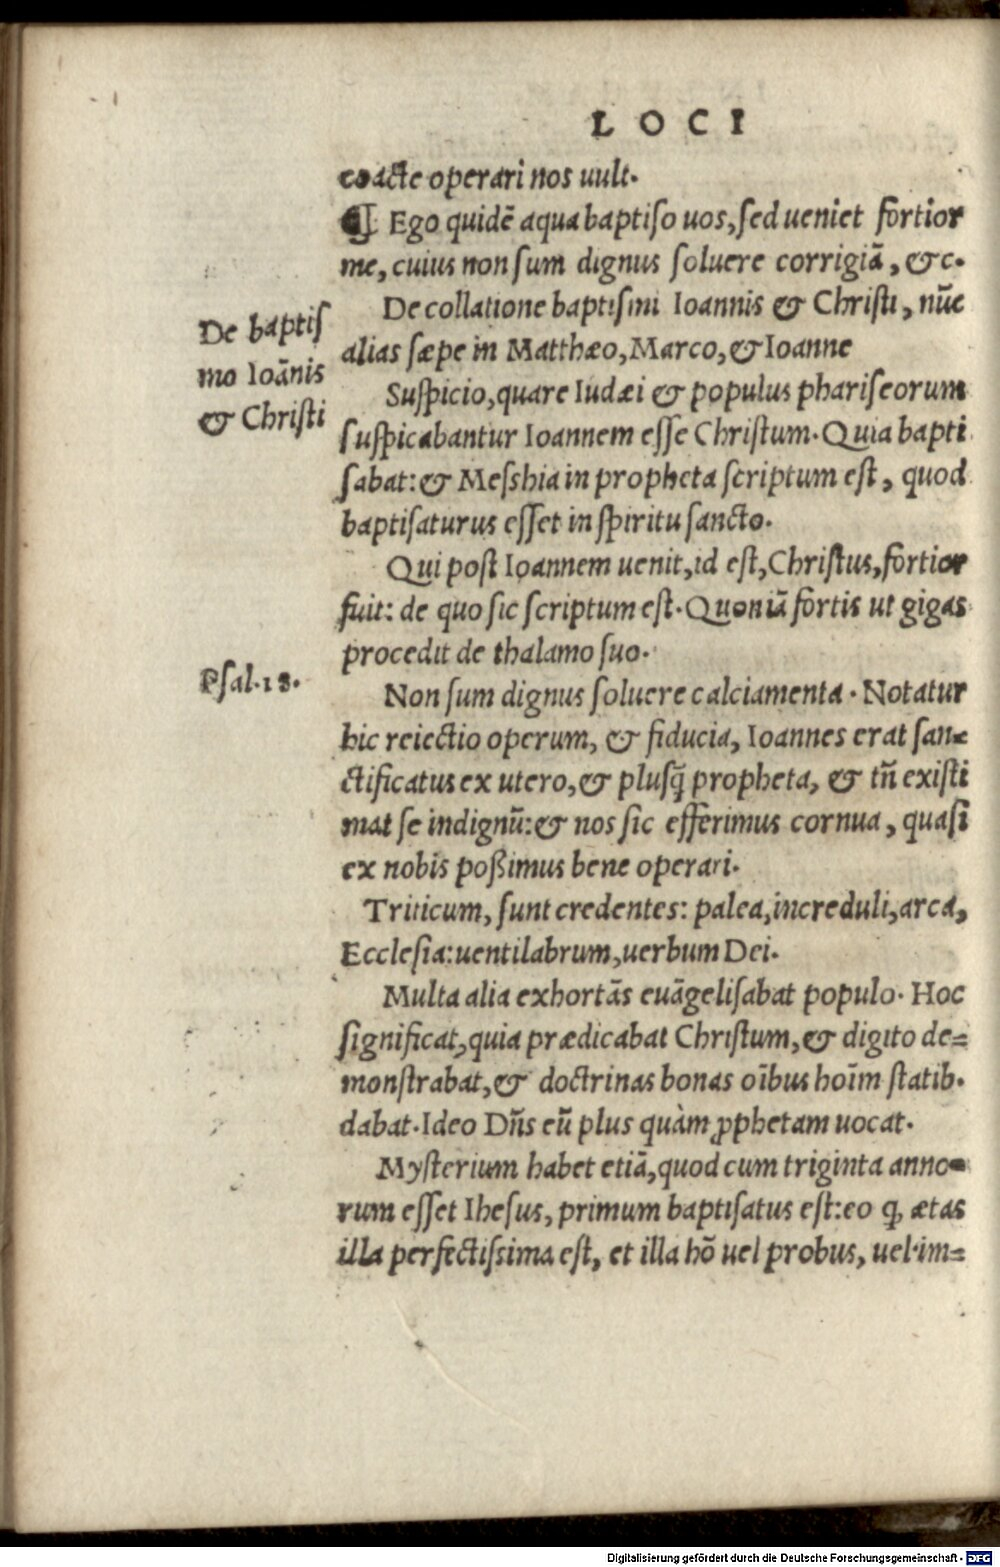 LOCI
coacte operari nos uult.
¶ Ego quidē aqua baptiſo uos, ſed ueniet fortior
me, cuius non ſum dignus ſoluere corrigiā, &c.
De collatione baptiſmi Ioannis & Chriſti, nūc
alias ſæpe in Matthæo, Marco, & Ioanne
De baptiſ
mo Ioānis
& Chriſti
Suſpicio, quare Iudæi & populus phariſeorum
ſuſpicabantur Ioannem eſſe Chriſtum. Quia bapti
ſabat: & Meſshia in propheta ſcriptum eſt, quod
baptiſaturus eſſet in ſpiritu ſancto.
Qui poſt Ioannem uenit, id eſt, Chriſtus, fortior
fuit: de quo ſic ſcriptum eſt. Quoniā fortis ut gigas
procedit de thalamo ſuo.
Pſal. 18.
Non ſum dignus ſoluere calciamenta. Notatur
hic reiectio operum, & fiducia, Ioannes erat ſan=
ctificatus ex utero, & pluſq̄ propheta, & tñ exiſti
mat ſe indignū: & nos ſic efferimus cornua, quaſi
ex nobis poßimus bene operari.
Triticum, ſunt credentes: palea, increduli, arca,
Eccleſia: uentilabrum, uerbum Dei.
Multa alia exhortās euāgeliſabat populo. Hoc
ſignificat, quia prædicabat Chriſtum, & digito de=
monſtrabat, & doctrinas bonas oībus hoīm ſtatib.
dabat. Ideo Dñs eū plus quàm ꝓphetam uocat.
Myſterium habet etiā, quod cum triginta anno=
rum eſſet Iheſus, primum baptiſatus eſt: eo ꝙ ætas
illa perfectiſsima eſt, et illa hō uel probus, uel im=
Digitalisierung gefördert durch die Deutsche Forschungsgemeinschaft - DFG